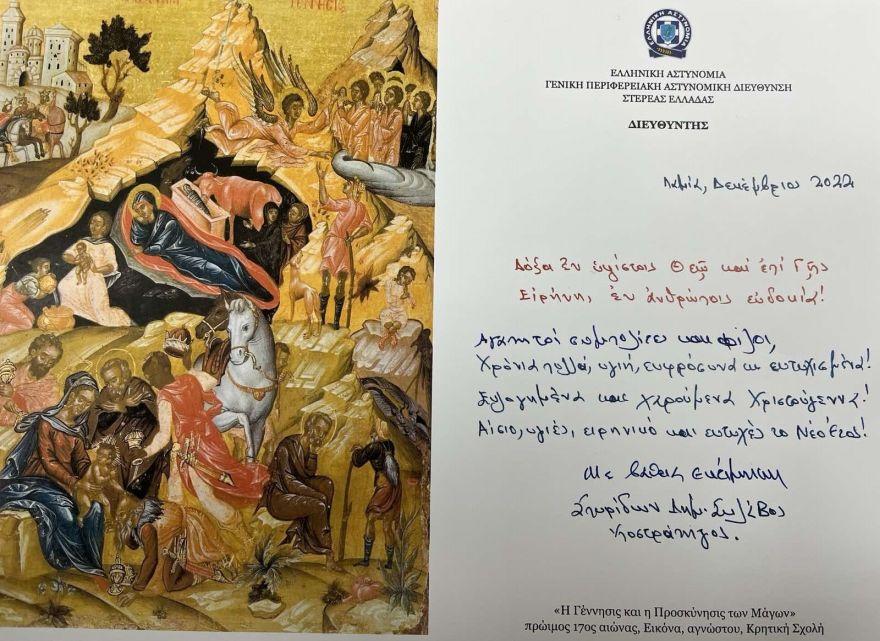 ΓΕΝΝΗΣΙΣ
ΕΛΛΗΝΙΚΗ ΑΣΤΥΝΟΜΙΑ
ΕΛΛΗΝΙΚΗ ΑΣΤΥΝΟΜΙΑ
ΓΕΝΙΚΗ ΠΕΡΙΦΕΡΕΙΑΚΗ ΑΣΤΥΝΟΜΙΚΗ ΔΙΕΥΘΥΝΣΗ
ΣΤΕΡΕΑΣ ΕΛΛΑΔΑΣ
ΔΙΕΥΘΥΝΤΗΣ
Λαμία, Δεκέμβριος 2022
Δόξα ἐν ὑψίστοις Θεῷ καί ἐπί Γῆς
Εἰρήνη, ἐν ἀνθρώποις εὐδοκία!
Αγαπητοί συμπολίτες και φίλοι,
Χρόνια πολλά, υγιή, ευφρόσυνα κ ευτυχισμένα!
Ευλογημένα και χαρούμενα Χριστούγεννα!
Αίσιο, υγιές, ειρηνικό και ευτυχές το Νέο Έτος!
Με βαθιά εκτίμηση
Σπυρίδων Δημ.
Υποστράτηγος.
«Η Γέννησις και η Προσκύνησις των Μάγων»
πρώιμος 17ος αιώνας, Εικόνα, αγνώστου, Κρητική Σχολή